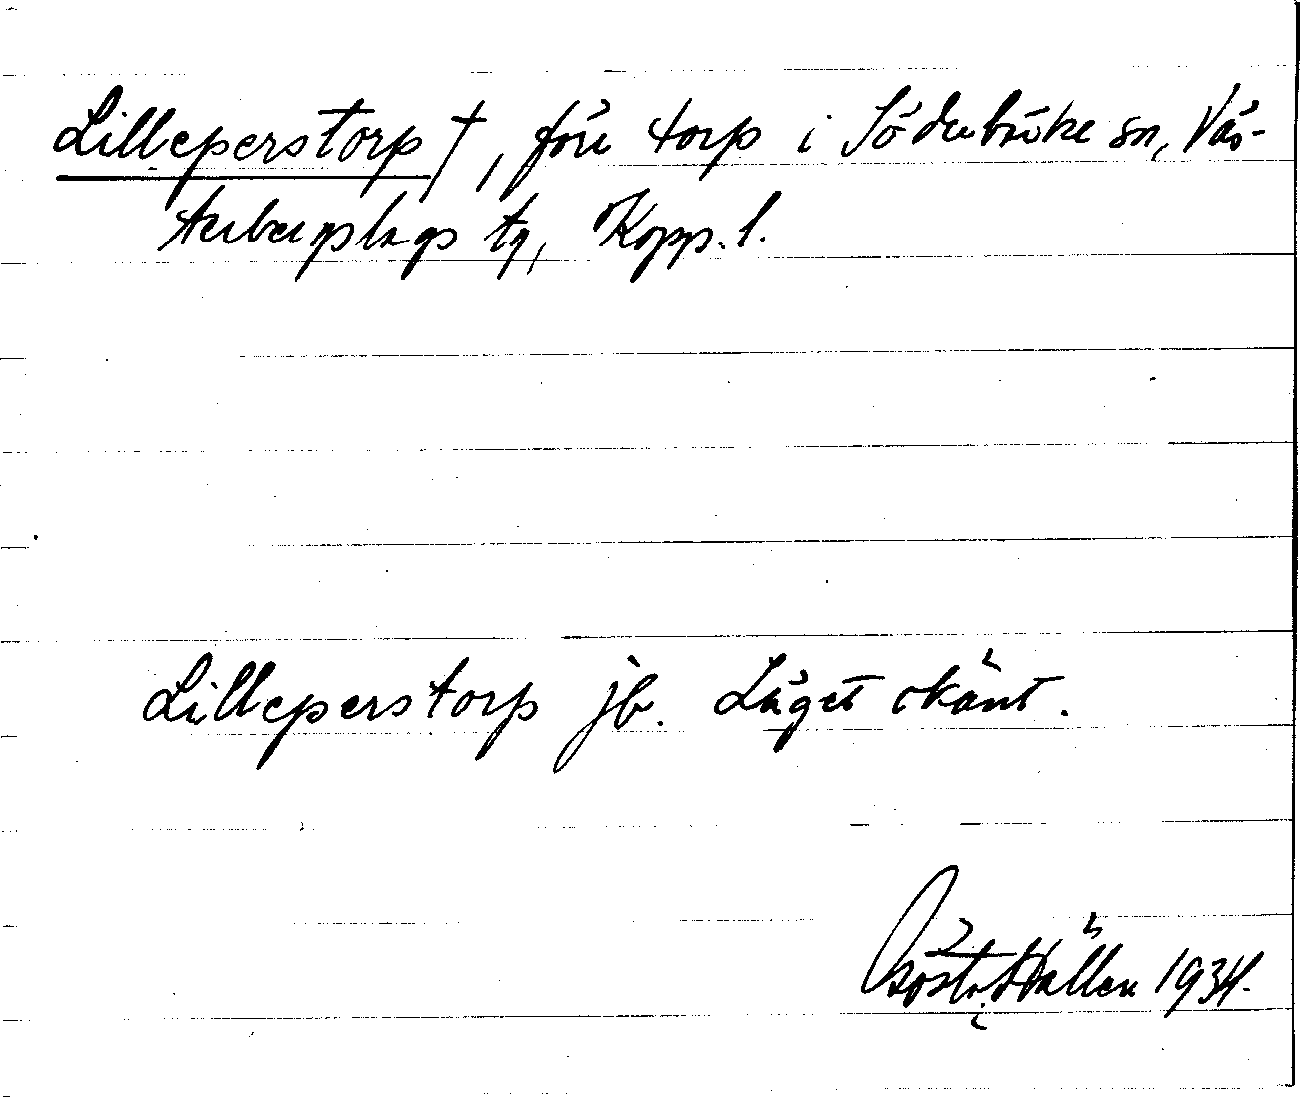 Lilleperstorp †, före torp i Söderbärke sn, Väs-
terbergslags tg, Kopp. l.
Lilleperstorp jb. Läget okänt.
Gösta Hällen 1934.